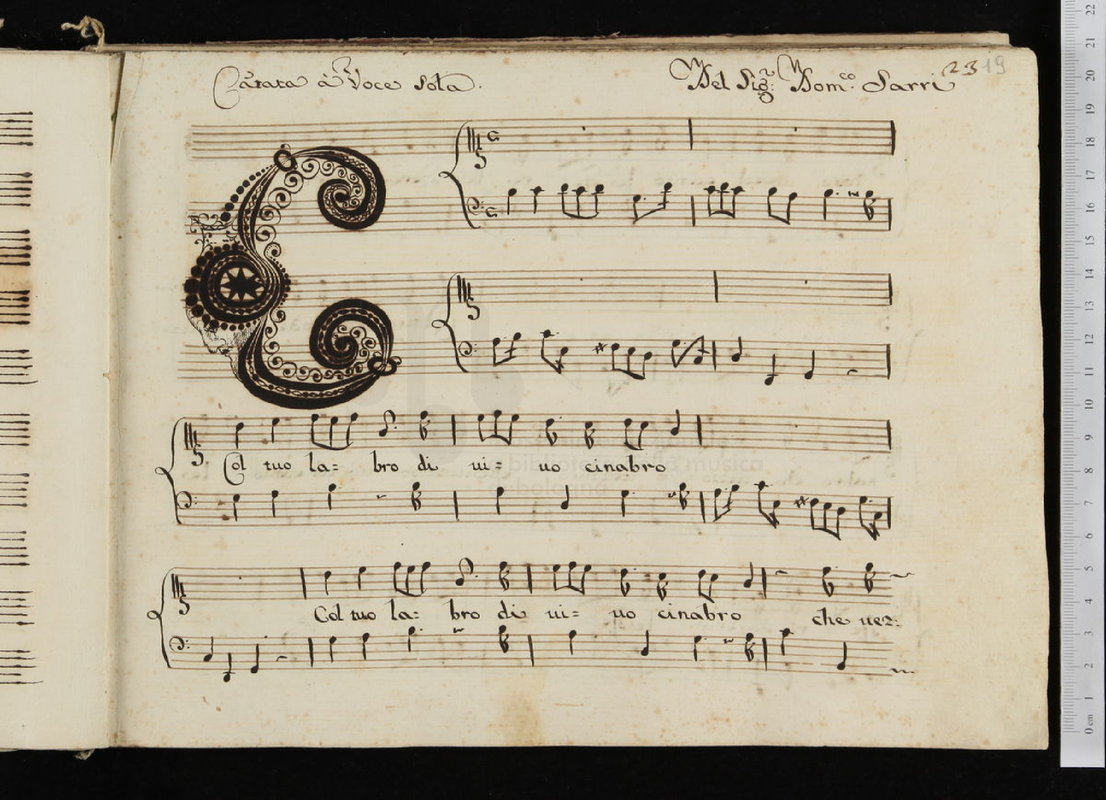 Cãtata à Voce sola.
Del Sig.r Dom.co Sarri
23 19
C
Col tuo la= bro di ui= uo cinabro
Col tuo la= bro di ui= uo cinabro che uer:
biblioteca della musica
bologna
22
21
20
19
18
17
16
15
14
13
12
11
10
9
8
7
6
5
4
3
2
1
0 cm